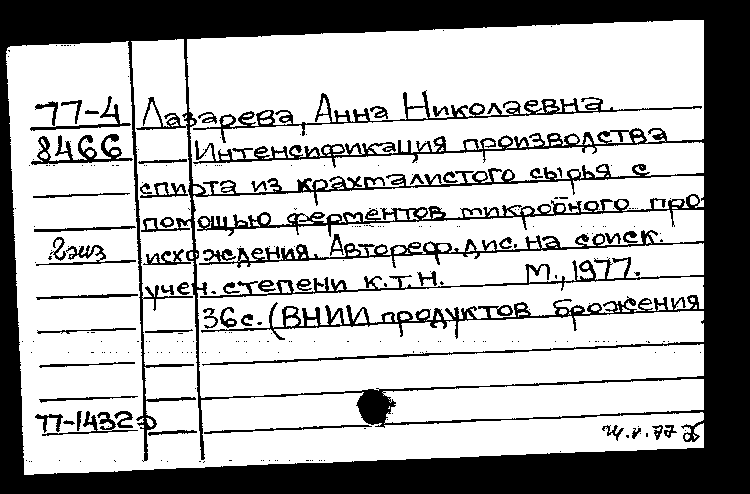 77-4 Лазарева, Анна Николаевна.
8466 Интенсификация производства
спирта из крахмалистого сырья с
помощью ферментов микробного про-
2 экз исхождения. Автореф. дис. на соиск.
учен. степени к.т.н. М., 1977.
36 с. (ВНИИ продуктов брожения
77-1432